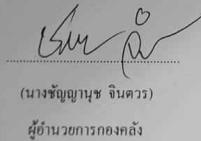 (นางชัญญานุช จินตวร)
ผู้อำนวยการกองคลัง